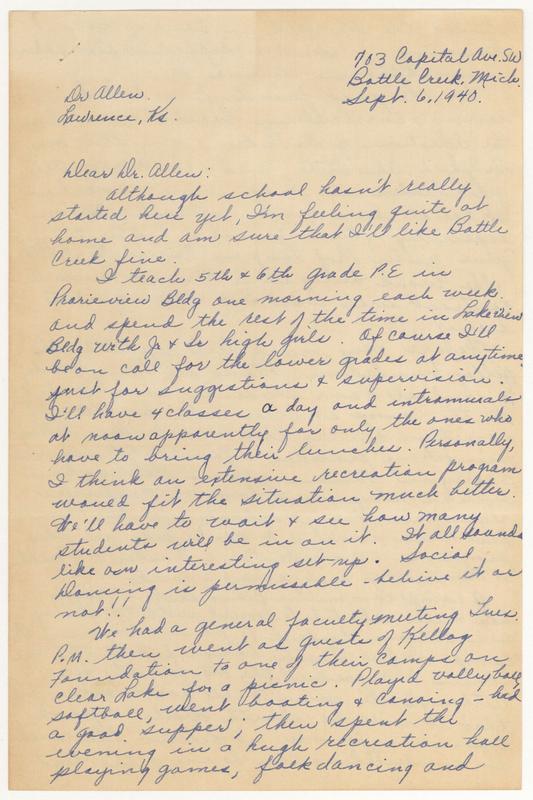 703 Capital Ave. SW
Battle Creek, Mich.
Sept. 6, 1940.
Dr Allen.
Lawrence, Ks.
Dear Dr. Allen:
Although school hasn't really
started here yet, I'm feeling quite at
home and am sure that I'll like Battle
Creek fine.
I teach 5th & 6th grade P.E in
Prarieview Bldg one morning each week.
and spend the rest of the time in Lakeview
Bldg with Jr & Sr high girls. Of course I'll
be on call for the lower grades at anytime
just for suggestions & supervision.
I'll have 4 classes a day and intramurals
at noon apparently for only the ones who
have to bring their lunches. Personally,
I think an extensive recreation program
would fit the situation much better.
We'll have to wait & see how many
students will be in on it. It all sounds
like an interesting set-up. Social
Dancing is permissable - believe it or
not!!
We had a general faculty meeting Tues.
P.M. then went as guests of Kellog
Foundation to one of their camps on
Clear Lake for a picnic. Played volleyball,
softball, went boating & canoing - had
a good supper; then spent the
evening in a hugh recreation hall
playing games, folk dancing and